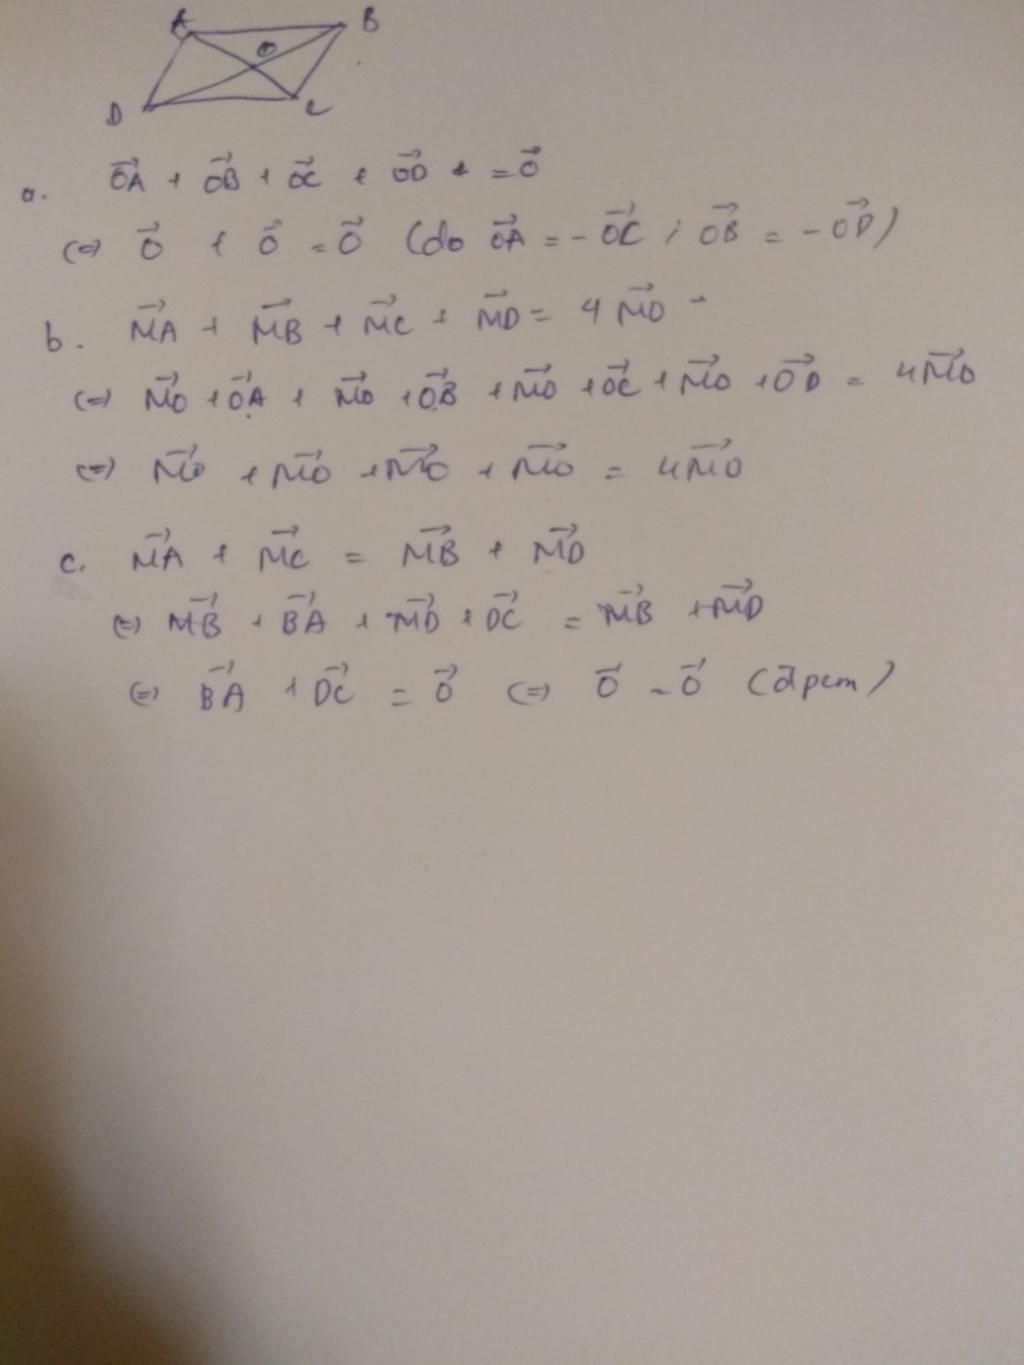 A B
O
D C
a. $\vec{OA} + \vec{OB} + \vec{OC} + \vec{OD} + = \vec{O}$
(=) $\vec{O} + \vec{O} = \vec{O}$ (do $\vec{OA} = -\vec{OC}$ ; $\vec{OB} = -\vec{OD}$)
b. $\vec{MA} + \vec{MB} + \vec{MC} + \vec{MD} = 4\vec{MO}$
(=) $\vec{MO} + \vec{OA} + \vec{MO} + \vec{OB} + \vec{MO} + \vec{OC} + \vec{MO} + \vec{OD} = 4\vec{MO}$
(=) $\vec{MO} + \vec{MO} + \vec{MO} + \vec{MO} = 4\vec{MO}$
c. $\vec{MA} + \vec{MC} = \vec{MB} + \vec{MD}$
(=) $\vec{MB} + \vec{BA} + \vec{MD} + \vec{DC} = \vec{MB} + \vec{MD}$
(=) $\vec{BA} + \vec{DC} = \vec{O}$ (=) $\vec{O} = \vec{O}$ (đpcm)